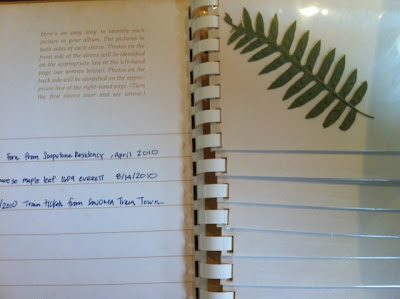 Here's an easy way to identify each
picture in your album. Put pictures in
both sides of each sleeve. Photos on the
front side of the sleeve will be identified
on the appropriate line of the left-hand
page (see arrows below). Photos on the
back side will be identified on the appro-
priate line of the right-hand page. (Turn
the first sleeve over and see arrow.)
Fern from Soapstone Residency, April 2010
anese maple leaf 1609 Everett 8/14/2010
/2010 Train tickets from Sonoma Train Town